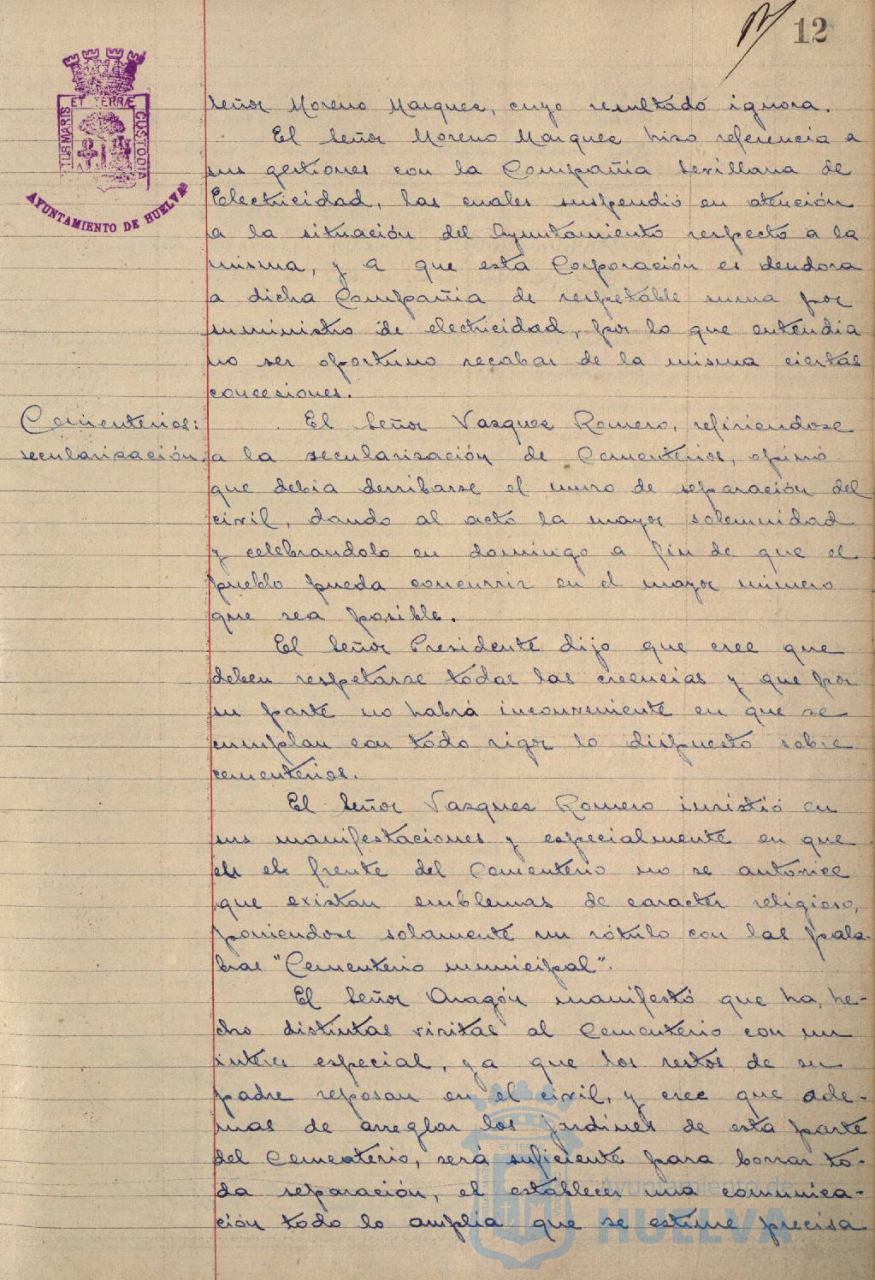 12
PORTUS MARIS ET TERRÆ CUSTODIA
AYUNTAMIENTO DE HUELVA
Señor Moreno Marquez, cuyo resultado ignora.
El Señor Moreno Marquez hizo referencia a
sus gestiones con la Compañia Sevillana de
Electricidad, las cuales suspendió en atención
a la situación del Ayuntamiento respecto a la
misma, y a que esta Corporación es deudora
a dicha Compañia de respetable suma por
suministro de electricidad, por lo que entendia
no ser oportuno recabar de la misma ciertas
concesiones.
Cementerios:
secularización.
El Señor Vazquez Romero, refiriendose
a la secularización de Cementerios, opinó
que debia derribarse el muro de separación del
civil, dando al acto la mayor solemnidad
y celebrandolo en domingo a fin de que el
pueblo pueda concurrir en el mayor número
que sea posible.
El Señor Presidente dijo que cree que
deben respetarse todas las creencias y que por
su parte no habrá inconveniente en que se
cumplan con todo rigor lo dispuesto sobre
cementerios.
El Señor Vazquez Romero insistió en
sus manifestaciones y especialmente en que
en el frente del Cementerio no se autorice
que existan emblemas de caracter religioso,
poniendose solamente un rótulo con las pala-
bras "Cementerio municipal".
El Señor Aragón manifestó que ha he-
cho distintas visitas al Cementerio con un
interes especial, ya que los restos de su
padre reposan en el civil, y cree que ade-
mas de arreglar los jardines de esta parte
del Cementerio, será suficiente para borrar to-
da separación, el establecer una comunica-
ción todo lo amplia que se estime precisa
Ayuntamiento de
HUELVA